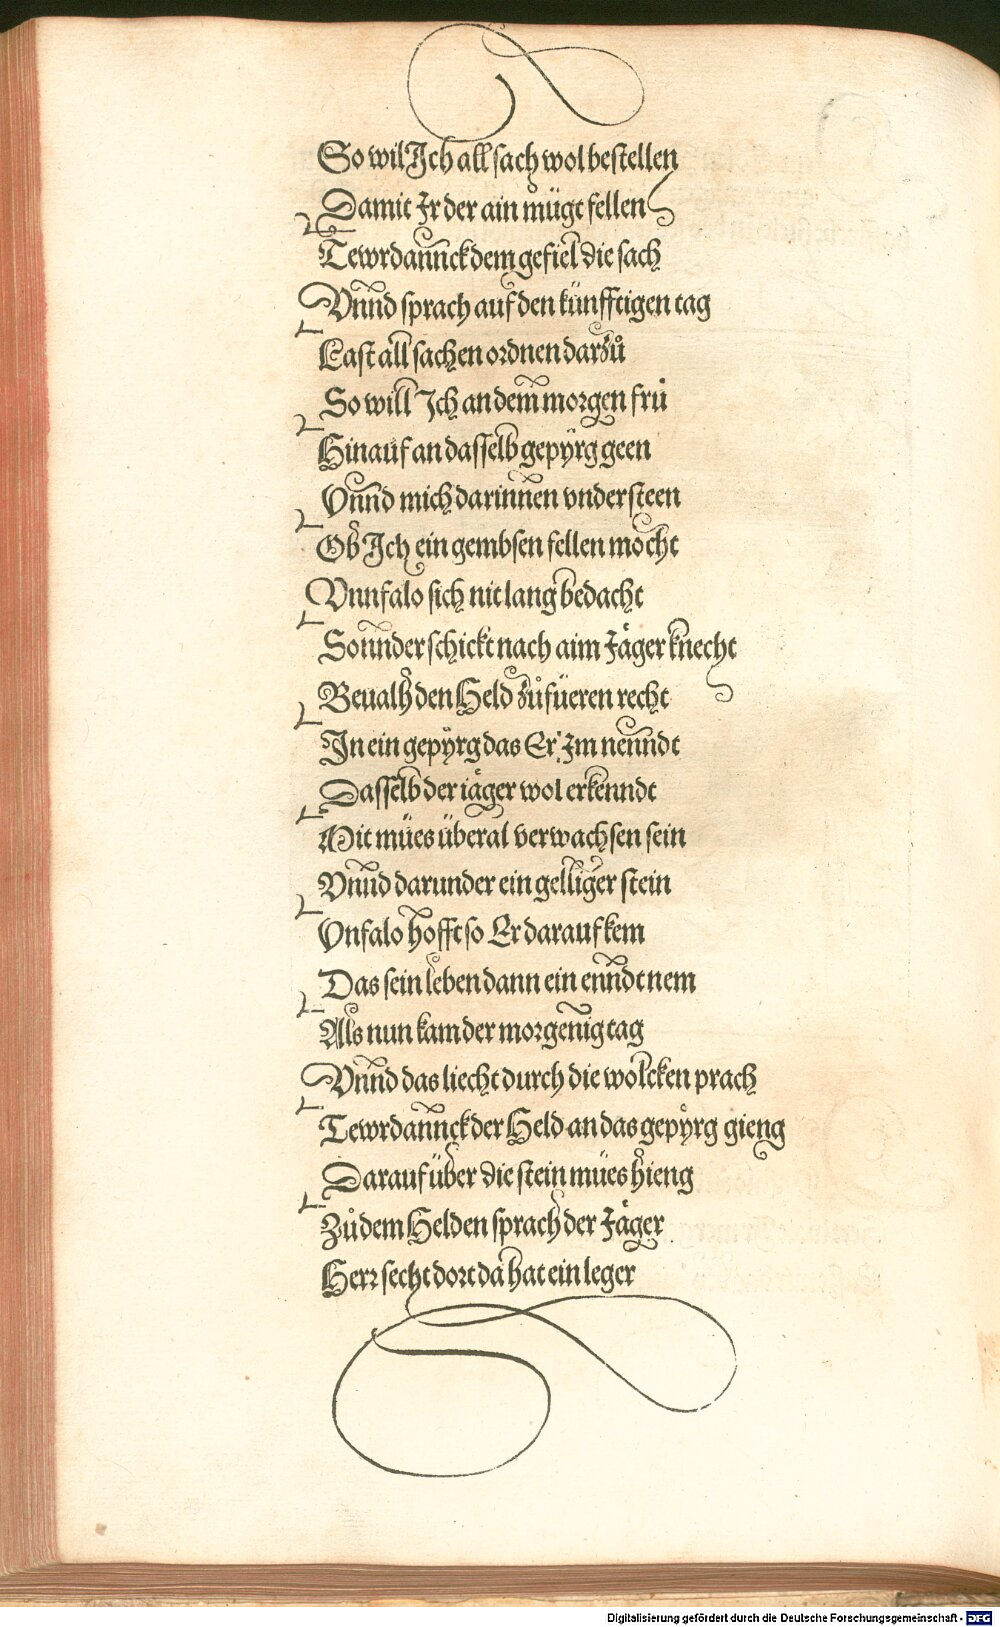 So wil Ich all sach wol bestellen
Damit Ir der ain mügt fellen
Tewrdannck dem gefiel die sach
Vnnd sprach auf den künfftigen tag
Last all sachen ordnen darzů
So will Ich an dem morgen frů
Hinauf an dasselb gepÿrg geen
Vnnd mich darinnen vndersteen
Ob Ich ein gembsen fellen möcht
Vnnfalo sich nit lang bedacht
Sonnder schickt nach aim Jäger knecht
Beualh den Held zůfüeren recht
In ein gepÿrg das Er Im nenndt
Dasselb der jäger wol erkenndt
Mit mües überal verwachsen sein
Vnnd darunder ein gelliger stein
Vnfalo hofft so Er darauf kem
Das sein leben dann ein enndt nem
Als nun kam der morgenig tag
Vnnd das liecht durch die wolcken prach
Tewrdannck der Held an das gepÿrg gieng
Darauf über die stein mües hieng
Zů dem Helden sprach der Jäger
Herr secht dort da hat ein leger
Digitalisierung gefördert durch die Deutsche Forschungsgemeinschaft - DFG